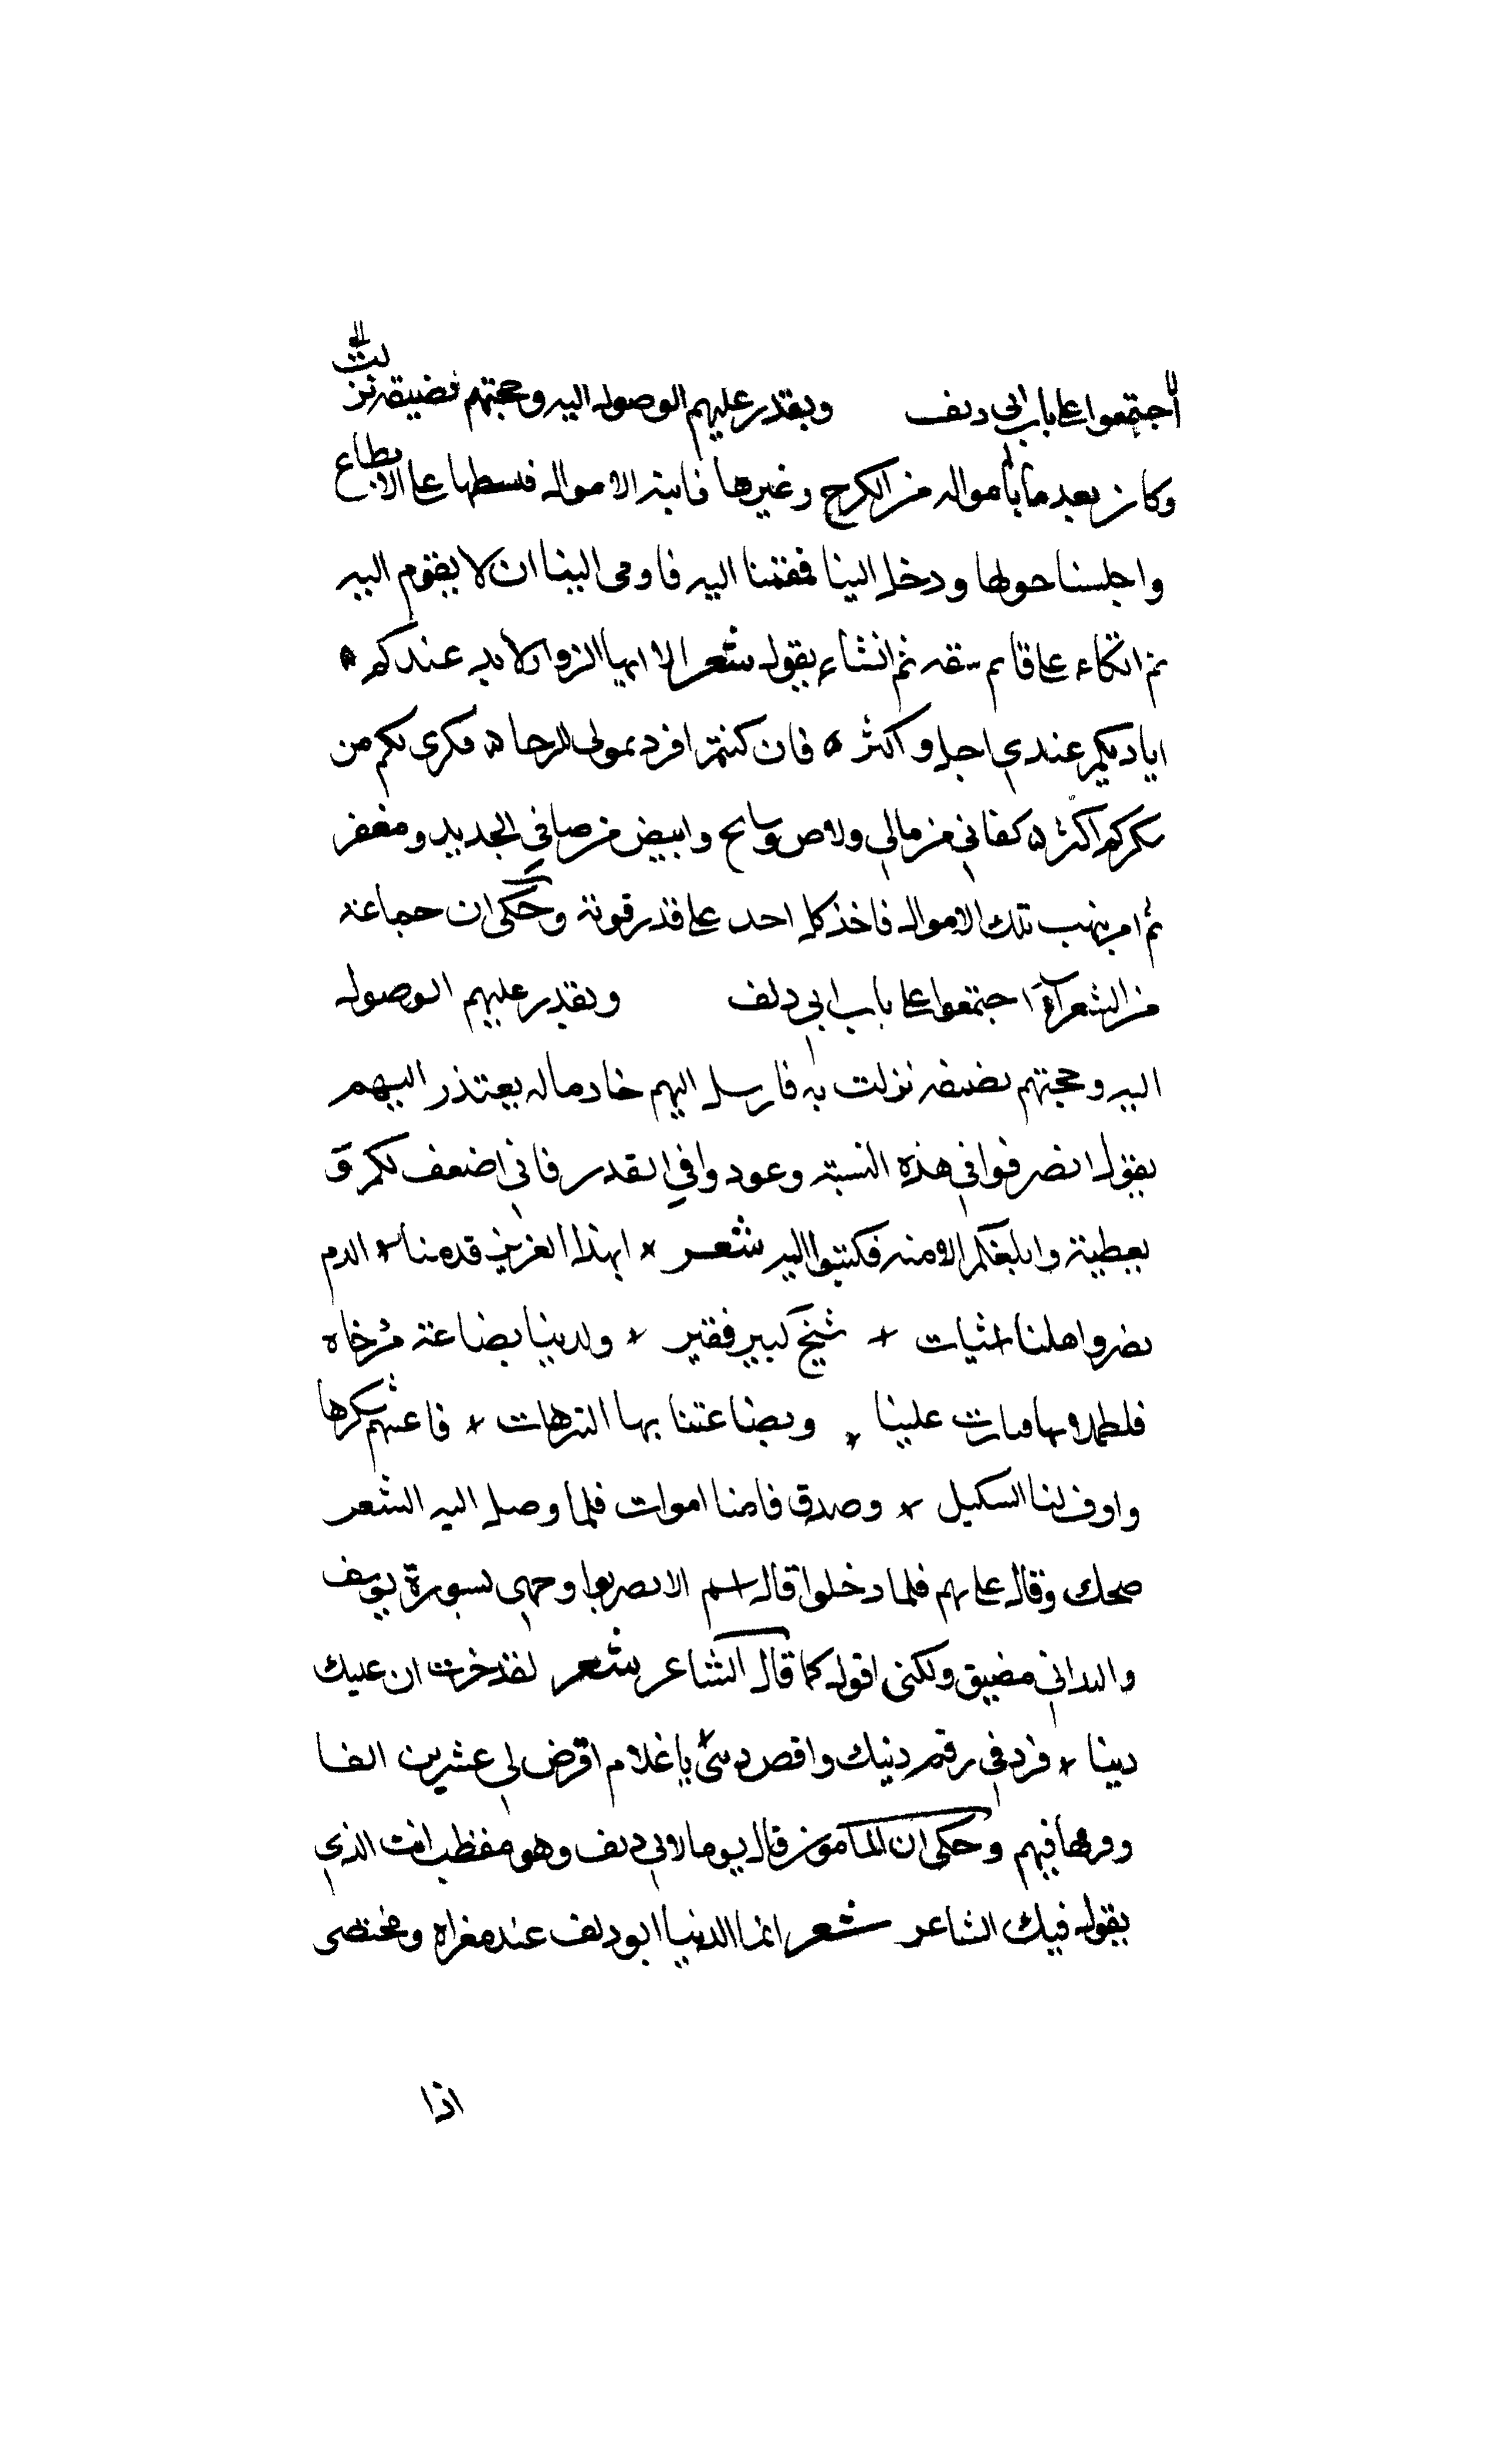 اجتمعوا على باب ابي دلف وبقدر عليهم الوصول اليه وحجبتهم لضيقة نزلت
وكان بعد ما با موال من الكرج وغيرها فاتته الاموال فبسطها على الانطاع
واجلسنا حولها ودخل الينا فقمنا اليه فاومى الينا ان لا يقوم اليه
ثم اتكاء على قايم سيفه ثم انشاء يقول شعر الا ايها الزوار لا يد عندكم ٥
اياديكم عندي اجل واكثر ٥ فان كنتم افرد بمولى للرجا ٥ فكرى لكم من
شكركم اكثر ٥ كفاني من مالي ولاص وسابح وابيض من صافي الحديد ومغفر
ثم امر بنهب تلك الاموال فاخذ كل احد على قدر قوته وحكى ان جماعة
من الشعرآء اجتمعوا على باب ابي دلف وبقدر عليهم الوصول
اليه وحجبتهم لضيفه نزلت به فارسل اليهم خادما له يعتذر اليهم
يقول انصرفوا في هذه النسبة وعودوا في القدر فاني اضعف لكم ق
بعطية وابلغكم الامنه فكتبوا اليه شعر * ايهذا العزيز قد منا * الدم
بضر واهلنا اشيات * شيخ كبير فقير * ولدينا بضاعة مزجاه
فبارت علينا * وبضاعتنا بها الترهات * فاغتنم شكرها
واوف لنا الكيل * وصدق فاننا اموات فلما وصل اليه الشعر
ضحك وقال على بهم فلما دخلوا قال الا تضربوا وجهي بسورة يوسف
والله اني مضيق ولكنى اقول كما قال الشاعر شعر لقد خبرت ان عليك
دينا * فزد في رقم دنيك واقض ديني يا غلام اقرض لي عشرين الفا
وفرقها فيهم وحكى ان المآمون قال يوما لابي دلف وهو مقطب انت الذي
يقول فيك الشاعر شعر انما الدنيا ابو دلف عند مغزاه ومحتضى
اذا